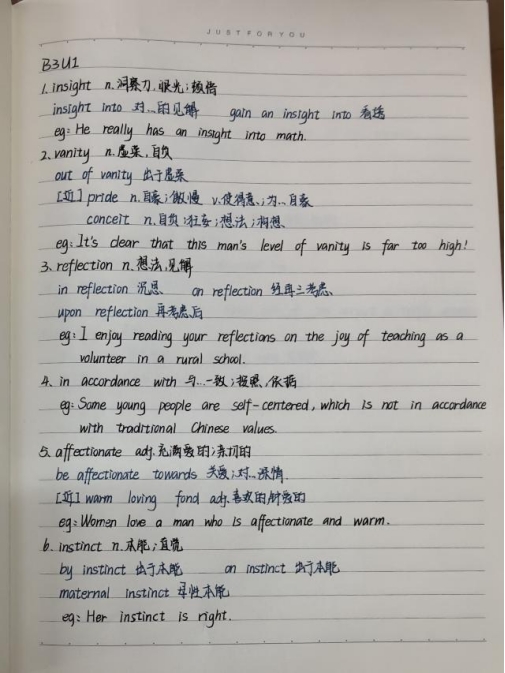 JUST FOR YOU
B3U1
1. insight n. 洞察力,眼光;领悟
insight into 对...的见解 gain an insight into 看透
eg: He really has an insight into math.
2. vanity n. 虚荣,自负
out of vanity 出于虚荣
[近] pride n. 自豪;傲慢 v. 使得意;为...自豪
conceit n. 自负;狂妄;想法;构想
eg: It's clear that this man's level of vanity is far too high!
3. reflection n. 想法,见解
in reflection 沉思 on reflection 经再三考虑
upon reflection 再考虑后
eg: I enjoy reading your reflections on the joy of teaching as a
volunteer in a rural school.
4. in accordance with 与...一致;按照,依据
eg: Some young people are self-centered, which is not in accordance
with traditional Chinese values.
5. affectionate adj. 充满爱的;亲切的
be affectionate towards 关爱;对...深情
[近] warm loving fond adj. 喜欢的,钟爱的
eg: Women love a man who is affectionate and warm.
6. instinct n. 本能;直觉
by instinct 出于本能 on instinct 出于本能
maternal instinct 母性本能
eg: Her instinct is right.